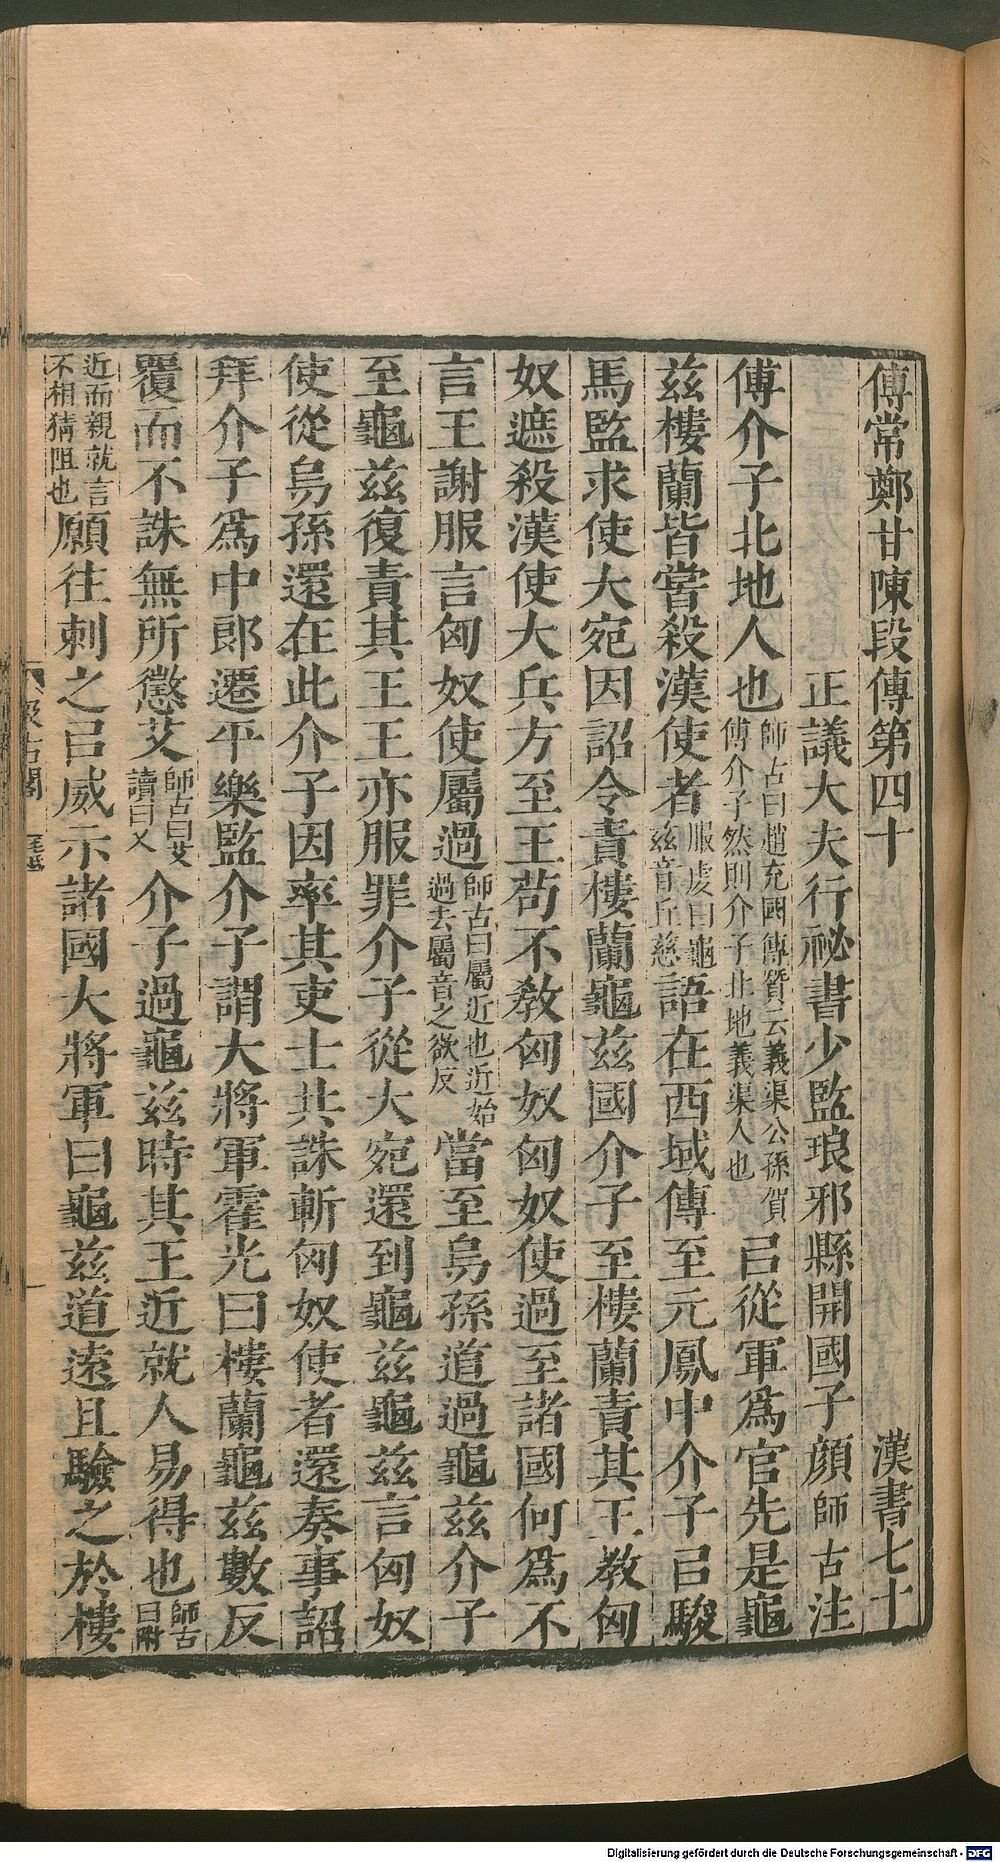 傅常鄭甘陳段傳第四十　漢書七十
正議大夫行祕書少監琅邪縣開國子顏師古注
傅介子北地人也師古曰趙充國傳贊云義渠公孫賀傅介子然則介子北地義渠人也㠯從軍爲官先是龜
茲樓蘭皆嘗殺漢使者服虔曰龜茲音丘慈語在西域傳至元鳳中介子㠯駿
馬監求使大宛因詔令責樓蘭龜茲國介子至樓蘭責其王教匈
奴遮殺漢使大兵方至王苟不教匈奴匈奴使過至諸國何爲不
言王謝服言匈奴使屬過師古曰屬近也近始過去屬音之欲反當至烏孫道過龜茲介子
至龜茲復責其王王亦服罪介子從大宛還到龜茲龜茲言匈奴
使從烏孫還在此介子因率其吏士共誅斬匈奴使者還奏事詔
拜介子爲中郎遷平樂監介子謂大將軍霍光曰樓蘭龜茲數反
覆而不誅無所懲艾師古曰艾讀曰乂介子過龜茲時其王近就人易得也師古曰附
近而親就言不相猜阻也願往刺之㠯威示諸國大將軍曰龜茲道遠且驗之於樓
汲古閣
Digitalisierung gefördert durch die Deutsche Forschungsgemeinschaft - DFG